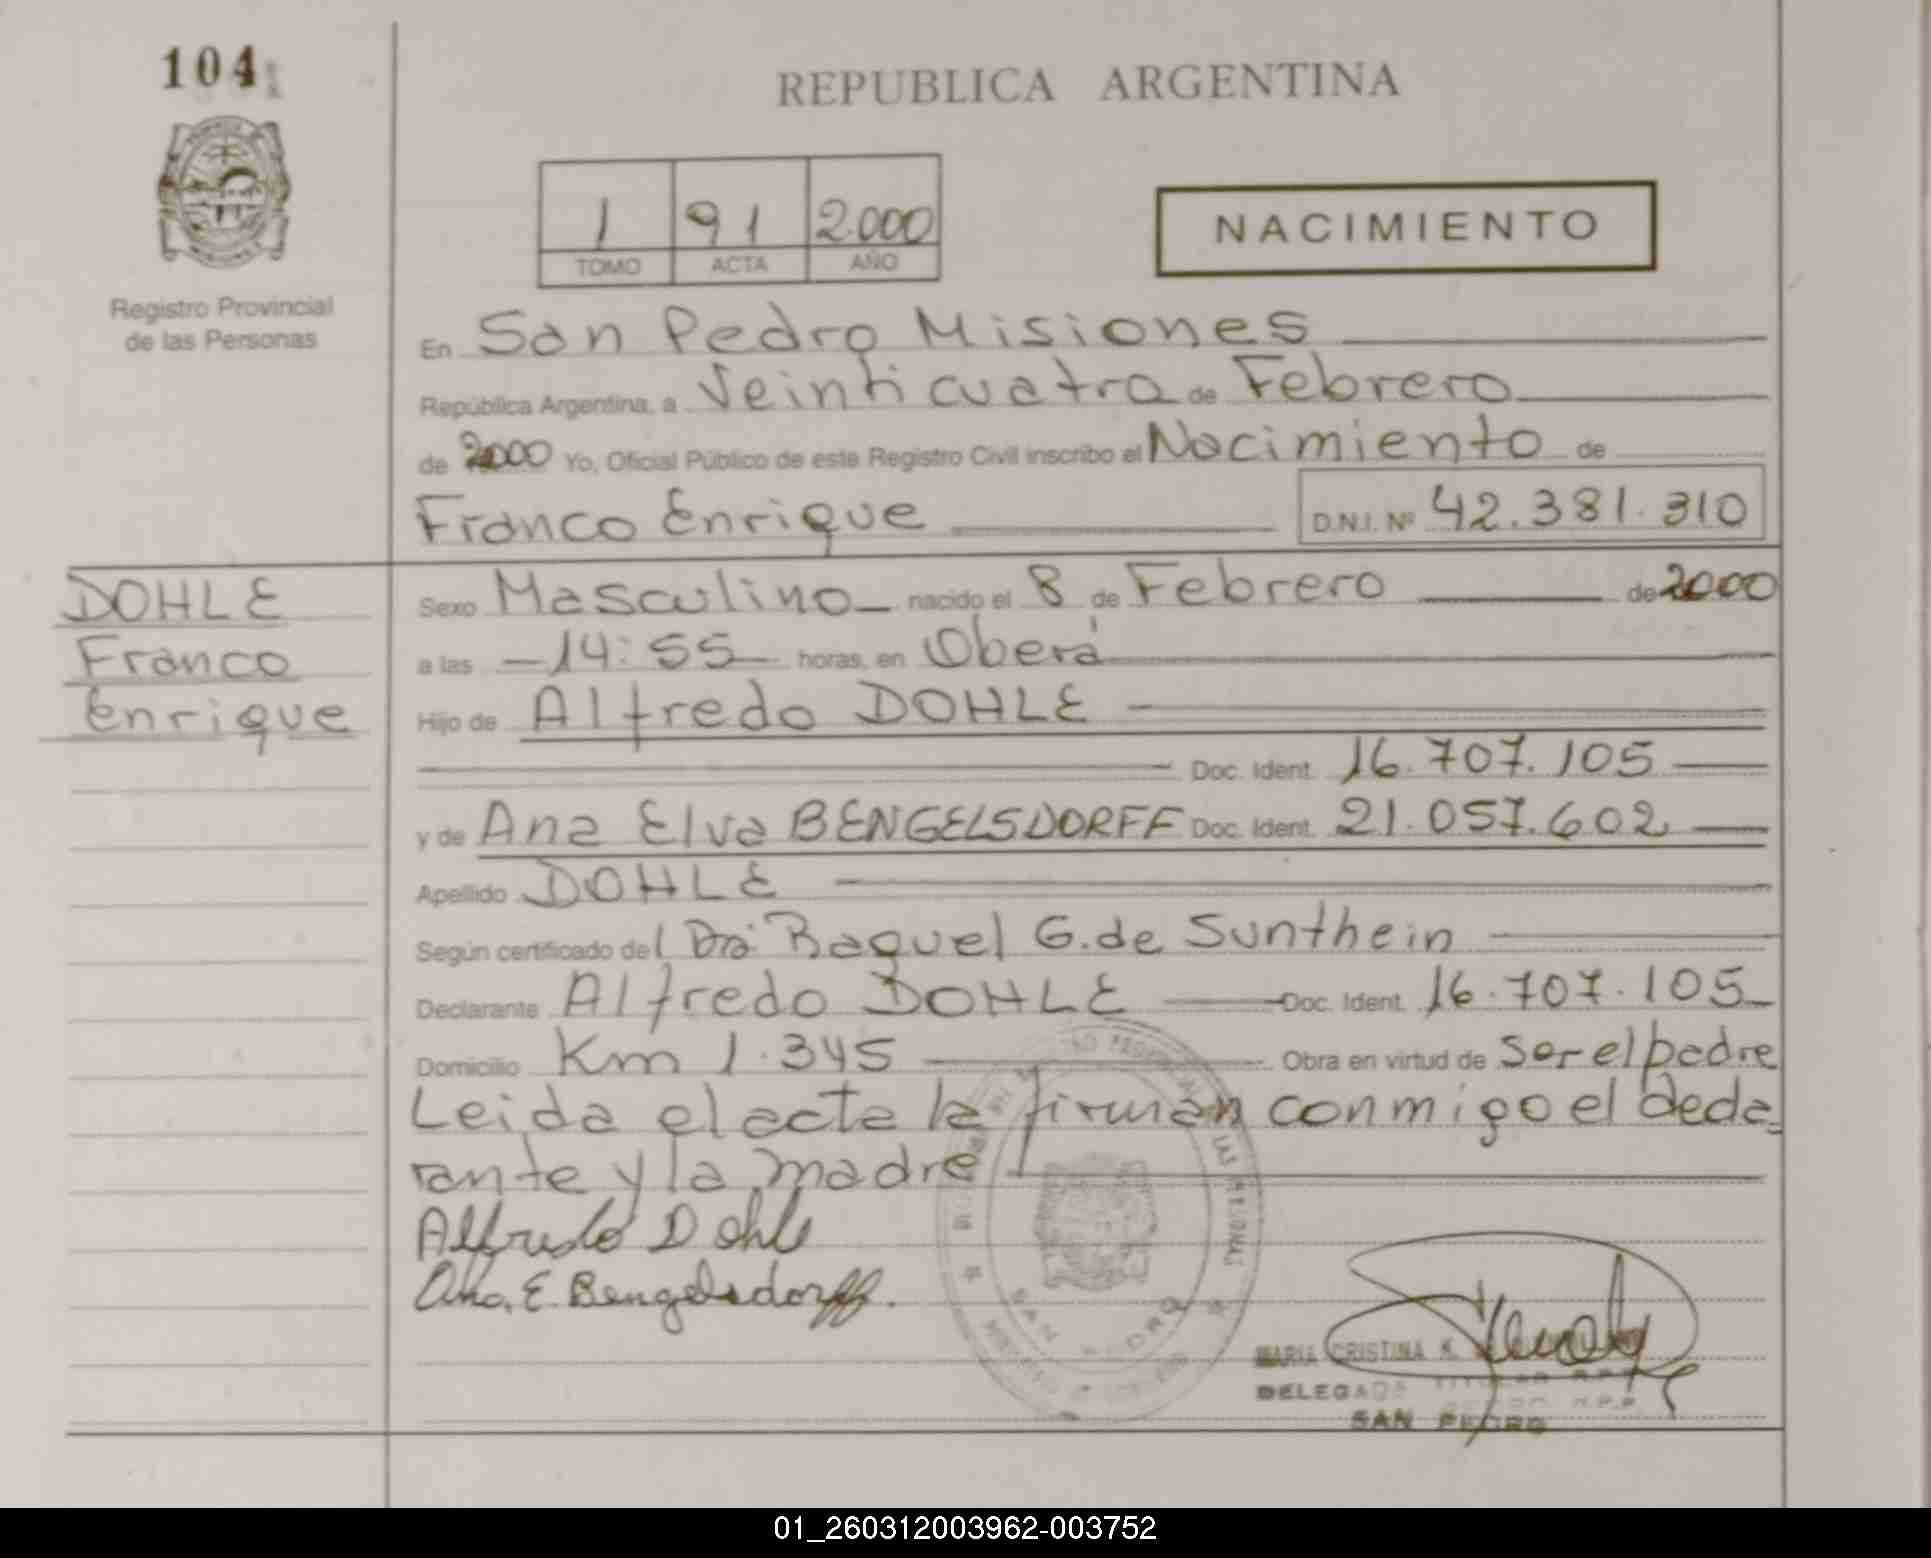 104
REPUBLICA ARGENTINA
1 91 2.000
TOMO ACTA AÑO
NACIMIENTO
Registro Provincial
de las Personas
En San Pedro Misiones
República Argentina, a Veinticuatro de Febrero
de 2000 Yo, Oficial Público de este Registro Civil inscribo el Nacimiento de
Franco Enrique D.N.I. Nº 42.381.310
DOHLE
Franco
Enrique
Sexo Masculino nacido el 8 de Febrero de 2000
a las 14:55 horas, en Oberá
Hijo de Alfredo DOHLE
Doc. Ident. 16.707.105
y de Ana Elva BENGELSDORFF Doc. Ident. 21.057.602
Apellido DOHLE
Según certificado del Dra. Raquel G. de Sunthein
Declarante Alfredo DOHLE Doc. Ident. 16.707.105
Domicilio Km 1.345 Obra en virtud de ser el padre
Leida el acta la firman conmigo el decla=
rante y la madre
Alfredo Dohle
Ana. E. Bengelsdorff.
SAN PEDRO
MARIA CRISTINA K.
DELEGADA TITULAR R.P.P.
SAN PEDRO
01_260312003962-003752